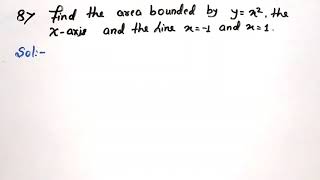 8> Find the area bounded by y = x², the
x-axis and the line x=-1 and x=1.
Sol:-